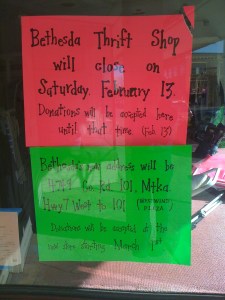 Bethesda Thrift Shop
will close on
Saturday, February 13.
Donations will be accepted here
until that time (Feb. 13)
Bethesda's new address will be
Co. Rd. 101, Mtka.
Hwy 7 West to 101
Donations will be accepted at the
new store starting March 1st